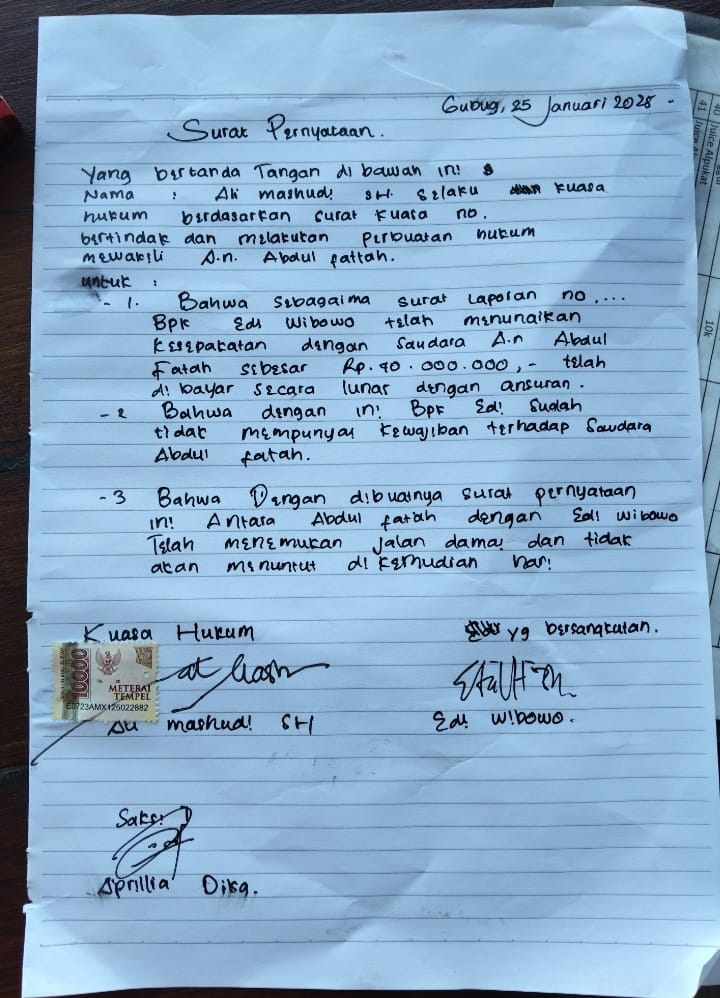 Gubug, 25 Januari 2025 -
Surat Pernyataan.
Yang bertanda Tangan di bawah ini
Nama : Ali mashudi SH. Selaku kuasa
hukum berdasarkan surat kuasa no.
bertindak dan melakukan perbuatan hukum
mewakili A.n. Abdul fattah.
untuk :
- 1. Bahwa sebagaima surat laporan no....
Bpk Edi Wibowo telah menunaikan
kesepakatan dengan saudara A.n Abdul
Fatah sebesar Rp. 40.000.000,- telah
di bayar secara lunas dengan ansuran.
- 2 Bahwa dengan ini Bpk Edi Sudah
tidak mempunyai kewajiban terhadap Saudara
Abdul fatah.
- 3 Bahwa Dengan dibuatnya surat pernyataan
ini Antara Abdul fatah dengan Edi wibowo
Telah menemukan jalan damai dan tidak
akan menuntut di kemudian hari
Kuasa Hukum
yg bersangkutan.
10000
METERAI
TEMPEL
E0723AMX125022882
Ali mashudi SH
Edi Wibowo.
Saksi
Aprillia Diska.
41
Juice Alpukat
10k